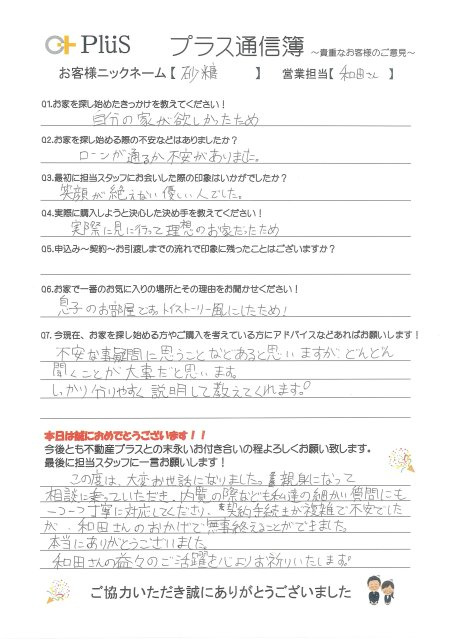 PlüS プラス通信簿 ～貴重なお客様のご意見～
お客様ニックネーム【 砂糖 】 営業担当【 和田さん 】
Q1.お家を探し始めたきっかけを教えてください！
自分の家が欲しかったため
Q2.お家を探し始める際の不安などはありましたか？
ローンが通るか不安がありました。
Q3.最初に担当スタッフにお会いした際の印象はいかがでしたか？
笑顔が絶えない優しい人でした。
Q4.実際に購入しようと決心した決め手を教えてください！
実際に見に行って理想のお家だったため
Q5.申込み～契約～お引渡しまでの流れで印象に残ったことはございますか？
Q6.お家で一番のお気に入りの場所とその理由をお聞かせください！
息子のお部屋です。トイストーリー風にしたため！
Q7.今現在、お家を探し始める方やご購入を考えている方にアドバイスなどあればお願いします！
不安な事疑問に思うことなどあると思いますが、どんどん
聞くことが大事だと思います。
しっかり分りやすく説明して教えてくれます。
本日は誠におめでとうございます！！
今後とも不動産プラスとの末永いお付き合いの程よろしくお願い致します。
最後に担当スタッフに一言お願いします！
この度は、大変お世話になりました。親身になって
相談に乗っていただき、内覧の際なども私達の細かい質問にも
一つ一つ丁寧に対応してくださり、契約手続きが複雑で不安でした
が、和田さんのおかげで無事終えることができました。
本当にありがとうございました。
和田さんの益々のご活躍を心よりお祈りいたします。
ご協力いただき誠にありがとうございました